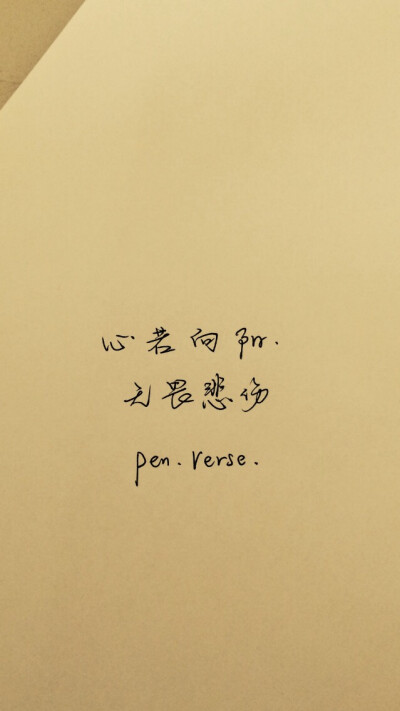 心若向阳.
无畏悲伤
pen. verse.